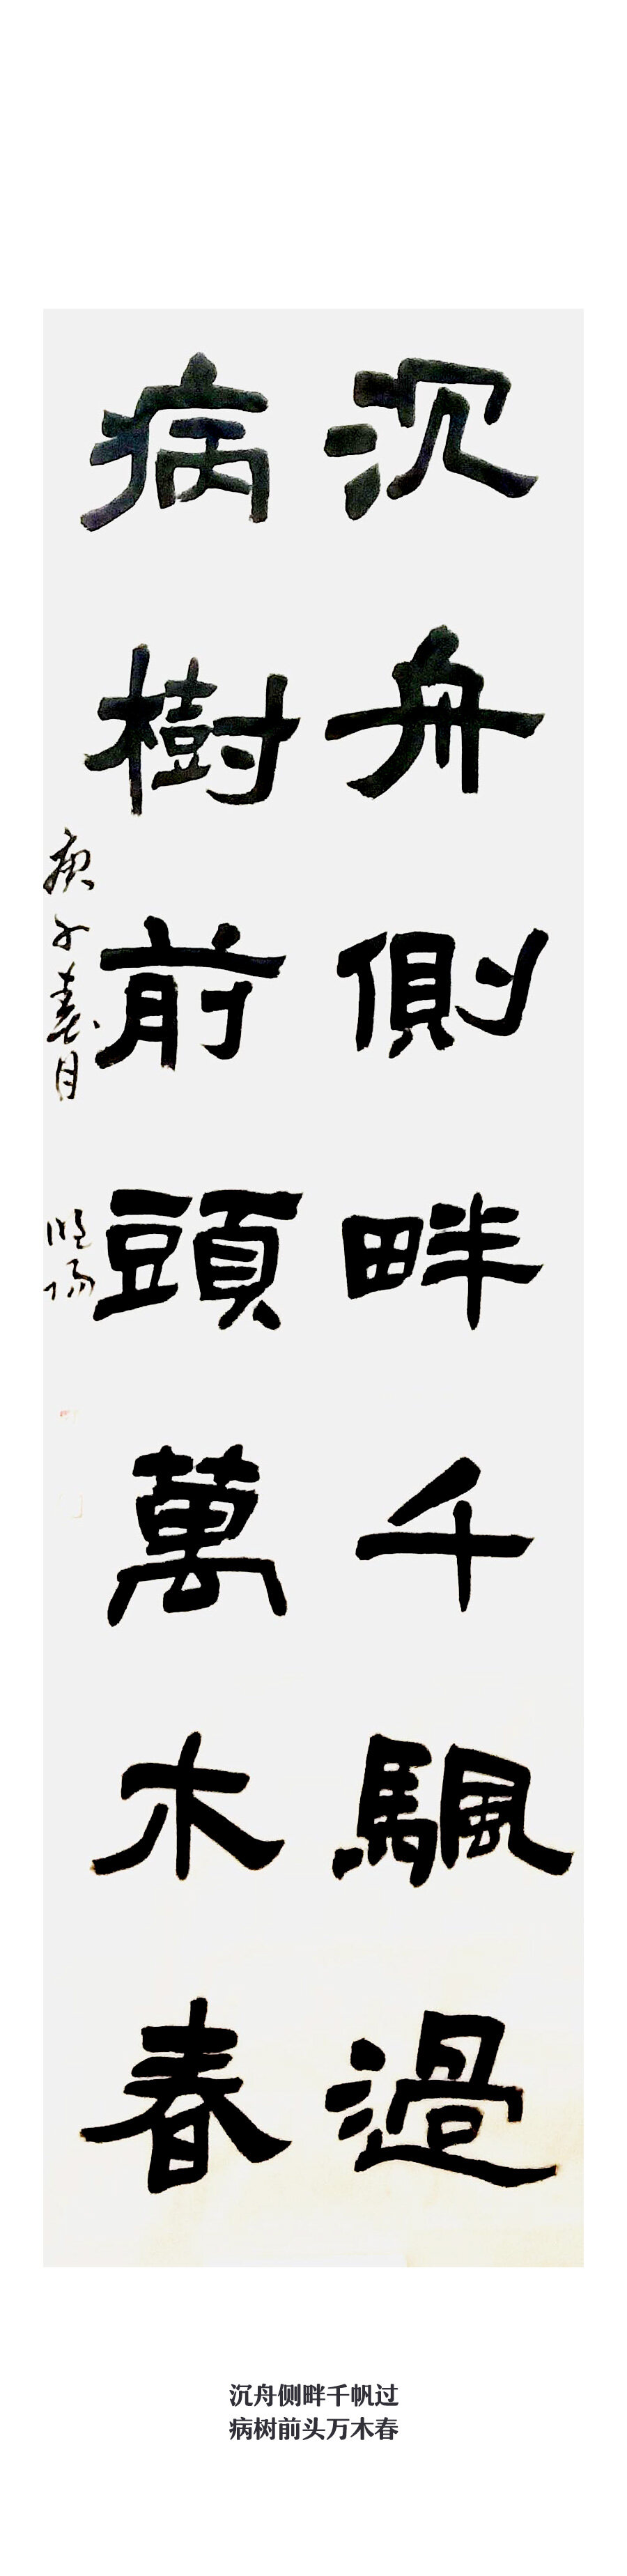 沉舟側畔千颿過
病樹前頭萬木春
庚子春月
沉舟侧畔千帆过
病树前头万木春